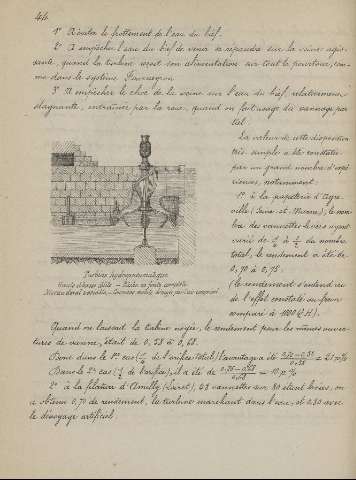 44
1° D'éviter le frottement de l'eau du bief.
2° D'empêcher l'eau du bief de venir se répandre sur la veine affluente, quand la turbine reçoit son alimentation sur tout le pourtour, com-
me dans le système Fourneyron.
3° D'empêcher le choc de la veine sur l'eau du bief, relativement
stagnante, entraînée par la roue, quand on fait usage du vannage par-
tiel.
La valeur de cette disposition
très simple a été constatée
par un grand nombre d'expé-
riences, notamment:
1° à la papeterie d'
ville (Seine-et-Marne), le nom-
bre des vannettes levées ayant
varié de à du nombre
total, le rendement a été de
0,70 à 0,75;
(le rendement s'entend ici
de l'effet constaté au frein
comparé à 1000 Q.H).
Turbine hydropneumatique
Haute chute
Niveau d'aval variable
Quand on laissait la turbine noyée, le rendement pour les mêmes ouver-
tures de vanne, était de 0,58 à 0,68.
Donc dans le 1er cas ( de l'orifice total) l'avantage a été = 21 p%
Dans le 2e cas ( de l'orifice), il a été de = 10 p.%
2° à la filature d'Amilly (Loiret), 48 vannettes sur 80 étant levées, on
a obtenu 0,70 de rendement, la turbine marchant dans l'eau, et 0,80 avec
le dénoyage artificiel.